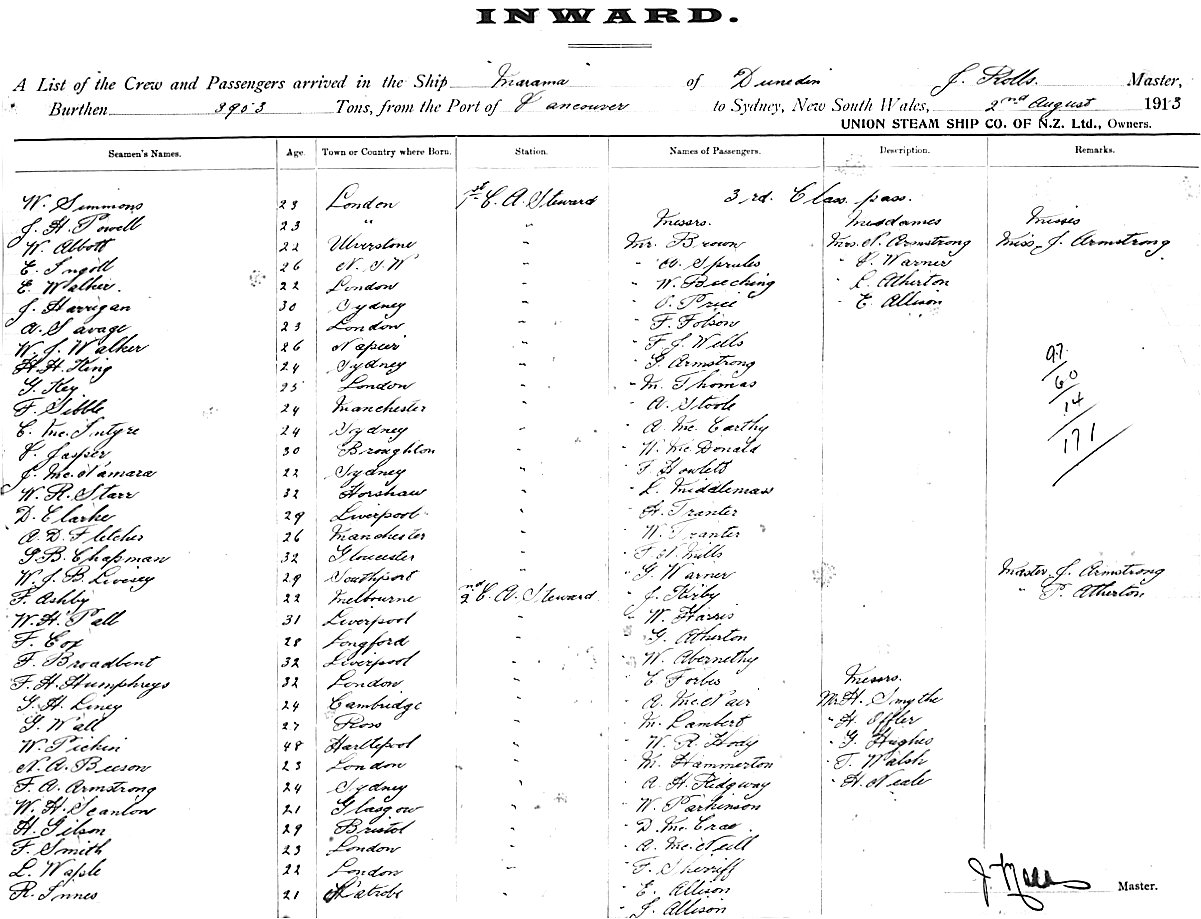 INWARD.
A List of the Crew and Passengers arrived in the Ship Marama of Dunedin J. Rolls Master,
Burthen 3903 Tons, from the Port of Vancouver to Sydney, New South Wales, 2nd August 1913
UNION STEAM SHIP CO. OF N.Z. Ltd., Owners.
Seamen's Names. Age. Town or Country where Born. Station. Names of Passengers. Description. Remarks.
W. Simmons 23 London 1st C. A. Steward 3rd. Class. pass.
J. H. Powell 23 " " Messrs. Mesdames Misses
W. Abbott 22 Ulverstone " Mr. Brown Mrs. N. Armstrong Miss J. Armstrong
E. Ingott 26 N. S. W " Sprules " Warner
E. Walker. 22 London " " W. Beeching " L. Atherton
J. Harrigan 30 Sydney " " Price " E. Allison
A. Savage 23 London " " F. Folson
W. J. Walker 26 Napier " " F J. Wells
H. H. King 24 Sydney " " G. Armstrong 97
G. Key 25 London " " M. Thomas 60
F. Sibble 24 Manchester " " A. Stoole 14
C. McIntyre 24 Sydney " " A. McCarthy 171
Jasper 30 Broughton " " W. McDonald
J. McNamara 22 Sydney " " F Howlett
W. R. Starr 32 Horsham " " L. Middlemass
D. Clarke 29 Liverpool " " H. Tranter
A. D. Fletcher 26 Manchester " " W. Tranter
G. B. Chapman 32 Gloucester " " F. N. Mills
W. J. B. Livesey 29 Southport " " G. Warner Master J. Armstrong
F. Ashby 22 Melbourne 2nd C. A. Steward " J. Kirby " Atherton
W. H. Pall 31 Liverpool " " W. Harris
F. Cox 28 Longford " " G. Atherton
F. Broadbent 32 Liverpool " " W. Abernethy
F. H. Humphreys 32 London " " C Forbes Messrs.
G. H. Liney 24 Cambridge " " A. McNair Mr H. Smythe
G. Wall 27 Ross " " M. Lambert " H. Effler
W. Pickin 48 Hartlepool " " W. R. Hody " G. Hughes
N. A. Beeson 23 London " " M. Hammerton " T. Walsh
F. A. Armstrong 24 Sydney " " A. H. Ridgway " H. Neale
W. H. Scanlon 21 Glasgow " " W. Parkinson
H. Gilson 29 Bristol " " D. McCrae.
F. Smith 23 London " " A. McNeill
L. Waple 22 London " " F. Sherriff
R. Innes 21 Latrobe " " E. Allison
" J. Allison
J. Rolls Master.